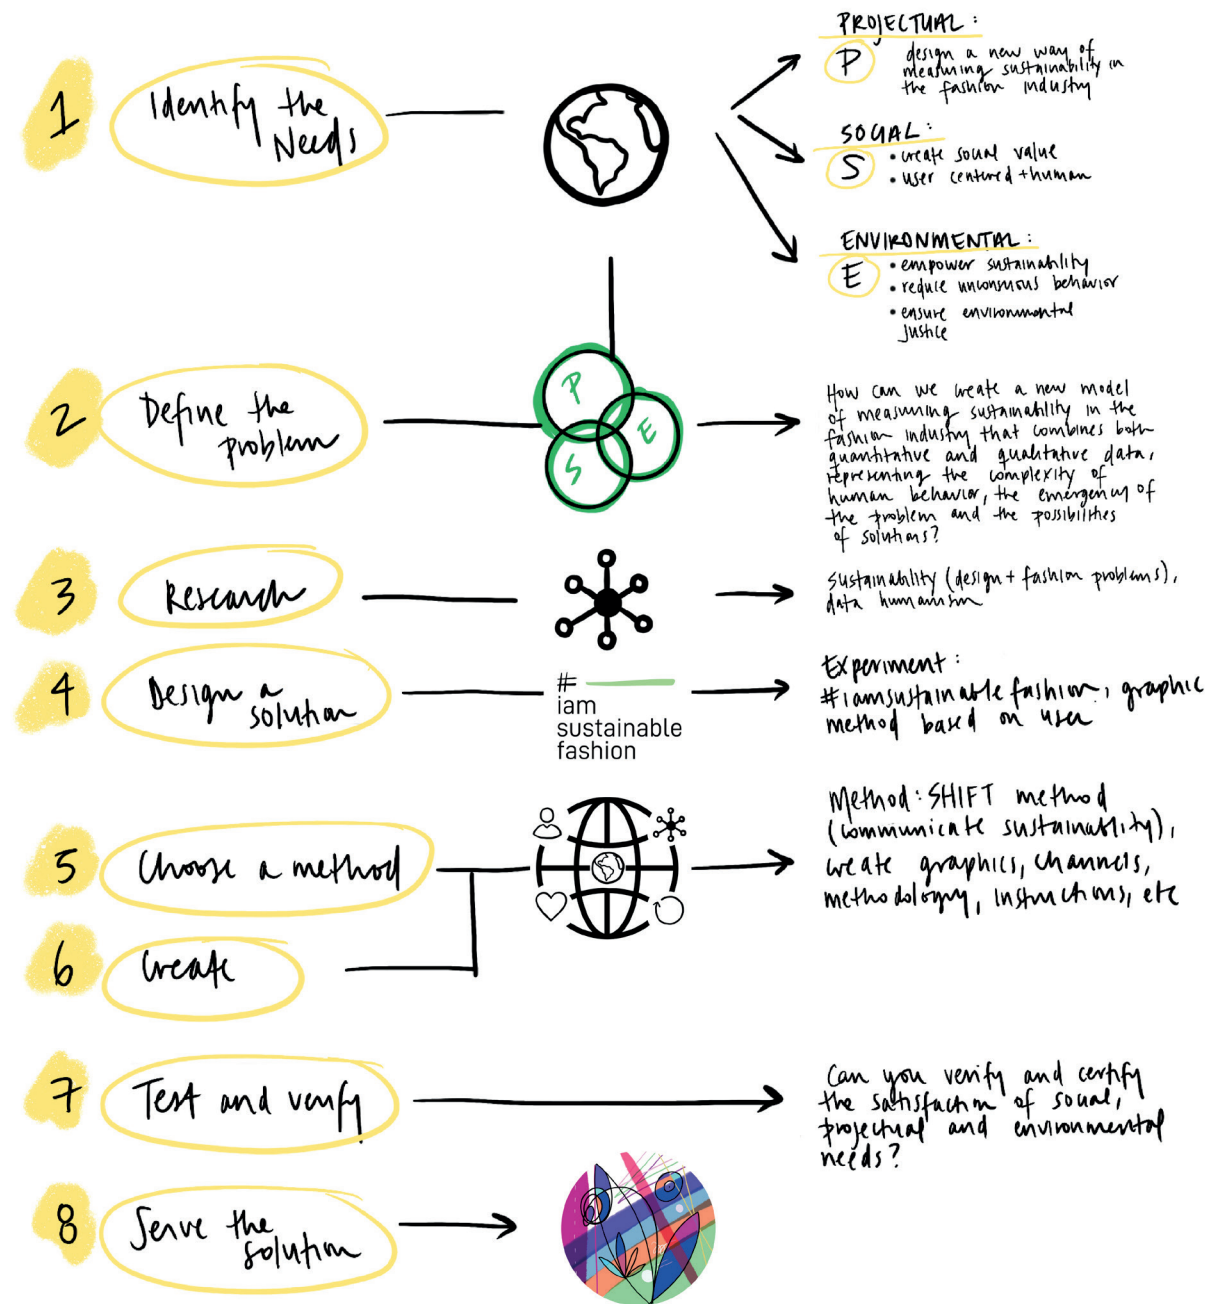 1
Identify the
Needs
PROJECTUAL:
P
design a new way of
measuring sustainability in
the fashion industry
SOCIAL:
S
• create social value
• user centered + human
ENVIRONMENTAL:
E
• empower sustainability
• reduce unconsuous behavior
• ensure environmental
justice
2
Define the
problem
P
E
S
How can we create a new model
of measuring sustainability in the
fashion industry that combines both
quantitative and qualitative data,
representing the complexity of
human behavior, the emergency of
the problem and the possibilities
of solutions?
3
Research
sustainability (design + fashion problems),
data humanism
4
Design a
solution
#
iam
sustainable
fashion
Experiment:
#iamsustainablefashion, graphic
method based on user
5
Choose a method
Method: SHIFT method
(communicate sustainability),
create graphics, channels,
methodology, instructions, etc
6
Create
7
Test and verify
Can you verify and certify
the satisfaction of social,
projectual and environmental
needs?
8
Serve the
solution